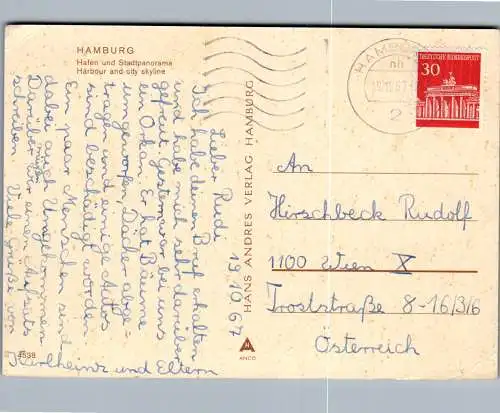 HAMBURG
Hafen und Stadtpanorama
Harbour and city skyline
HAMBURG
19.10.67
2
DEUTSCHE BUNDESPOST
30
19.10.67
Lieber Rudi
Ich habe deinen Brief erhalten
und habe mich sehr darüber
gefreut. Gestern war bei uns
ein Orkan. Er hat Bäume
umgeworfen, Dächer abge=
tragen und einige Autos
sind beschädigt worden
Ein paar Menschen sind
dabei auch Umgekommen.
Darüber wir einen Aufsatz
schreiben. Viele Grüße von
Karlheinz und Eltern
HANS ANDRES VERLAG HAMBURG
ANCO
4538
An
Hirschbeck Rudolf
1100 Wien X
Troststraße 8-16/3/6
Österreich